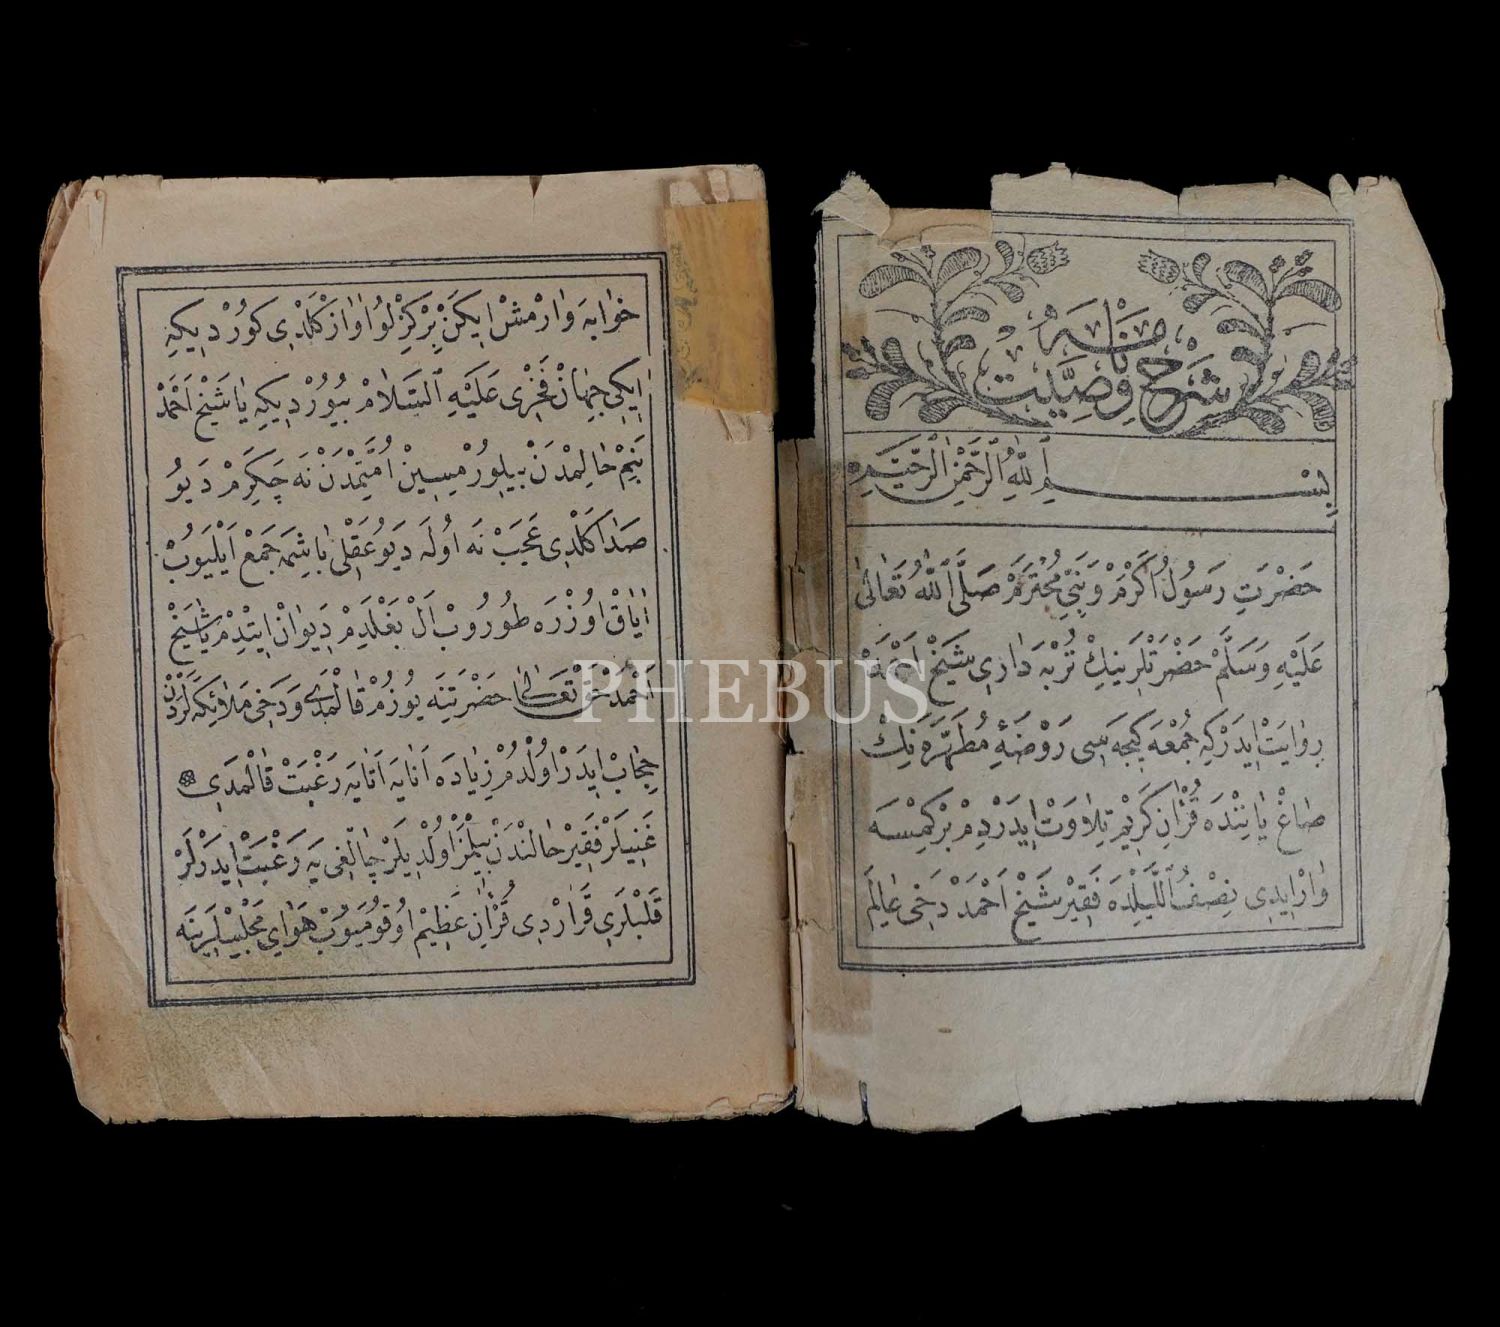 شرح وصيت نامه
بِسْمِ اللّٰهِ الرَّحْمٰنِ الرَّحِيمِ
حَضْرَتِ رَسُولُ اَكْرَمْ وَ نَبِىِّ مُحْتَرَمْ صَلَّى اللّٰهُ تَعَالٰى
عَلَيْهِ وَسَلَّمْ حَضْرَتْلَرِينِكْ تُرْبَه دَارِى شَيْخْ اَحْمَدْ
رِوَايَتْ اِيدَرْكِه جُمْعَه كِيجَه سِى رَوْضَۀِ مُطَهَّرَه نِكْ
صَاغْ يَانِنْدَه قُرْاٰنِ كَرِيمْ تِلَاوَتْ اِيدَرْدِمْ بِرْ كِمْسَه
وَارْ اِيدِى نِصْفُ اللَّيْلْدَه فَقِيرْ شَيْخْ اَحْمَدْ دَخِى عَالِمِ
خوَابَه وَارْمِشْ اِيكَنْ بِرْ كِزْلُو اٰوَازْ كَلْدِى كُورْدِيكِه
اِيكِى جِهَانْ فَخْرِى عَلَيْهِ السَّلَامْ بُيُورْدِيكِه يَا شَيْخْ اَحْمَدْ
بَنِمْ حَالِمْدَنْ بِيلُورْمِيسِينْ اُمَّتِمْدَنْ نَه چَكَرِمْ دَيُو
صَدَا كَلْدِى عَجَبْ نَه اُولَه دَيُو عَقْلِى بَاشِمَه جَمْعْ اَيْلَيُوبْ
اَيَاقْ اُوزْرَه طُورُوبْ اَلْ بَغْلَدِمْ دِيوَانْ اِيتْدِمْ يَا شَيْخْ
اَحْمَدْ حَقْ تَعَالٰى حَضْرَتِنَه يُوزُمْ قَالْمَدِى وَدَخِى مَلَائِكَه لَرْدَنْ
حِجَابْ اِيدَرْ اُولْدُمْ زِيَادَه اَنَايَه اَتَايَه رَغْبَتْ قَالْمَدِى
غَنِيلَرْ فَقِيرْ حَالِنْدَنْ بِيلْمَزْ اُولْدِيلَرْ چَالْغِى يَه رَغْبَتْ اِيدَرْلَرْ
قَلْبْلَرِى قَرَارْدِى قُرْاٰنِ عَظِيمْ اُوقُومَيُوبْ هَوَاىِ مَجْلِيسْلَرِينَه
PHEBUS